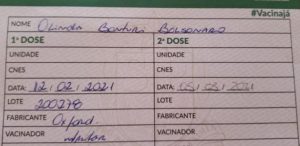 #Vacinajá
NOME Olinda Bonturi Bolsonaro
1ª DOSE 2ª DOSE
UNIDADE UNIDADE
CNES CNES
DATA: 12/02/2021 DATA: 05/03/2021
LOTE 200278 LOTE
FABRICANTE Oxford FABRICANTE
VACINADOR VACINADOR